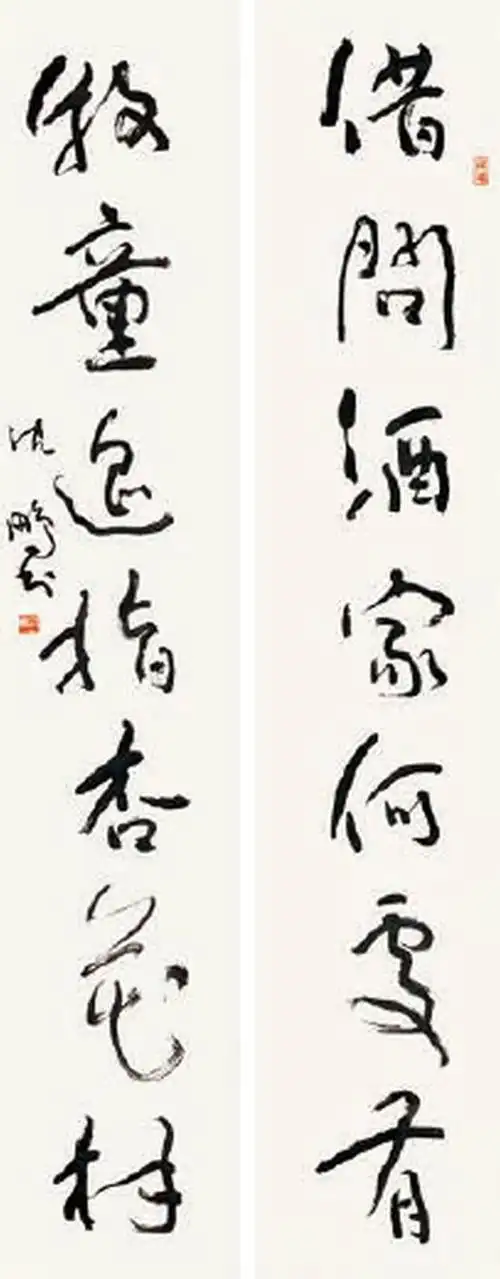 借問酒家何處有
牧童遥指杏花村
沈鵬书